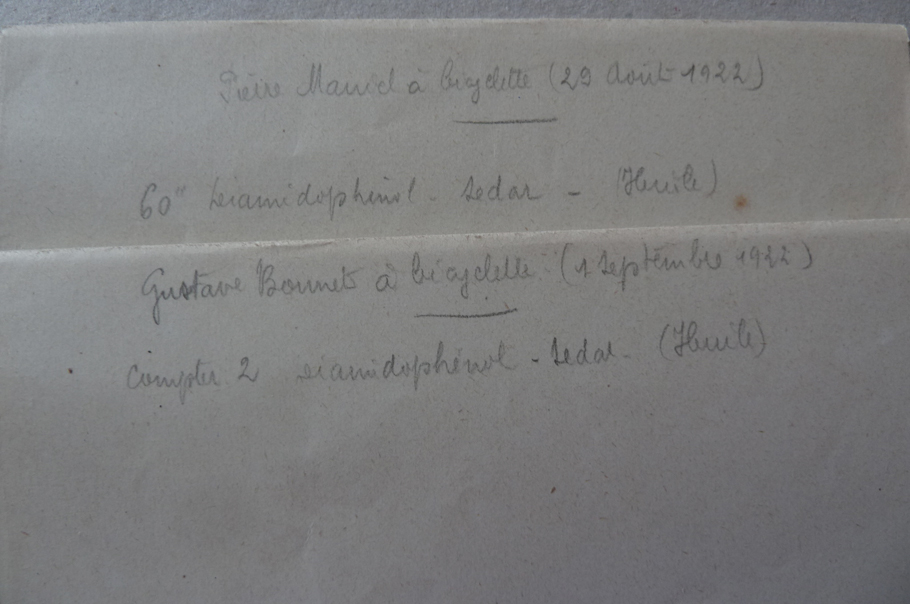 Pierre Marcel à bicyclette (29 Août 1922)
60" Diamidophénol - Sedar - (Huile)
Gustave Bonnet à bicyclette (1 Septembre 1922)
compter 2 Diamidophénol - Sedar - (Huile)